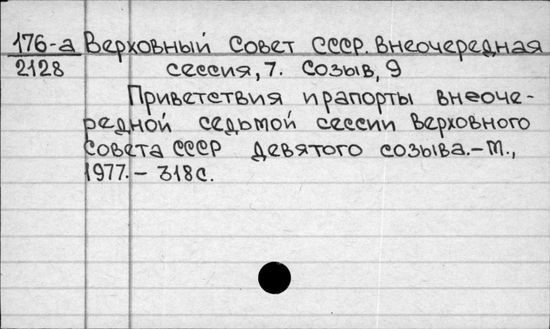 176-а Верховный Совет СССР. Внеочередная
2128 сессия, 7. Созыв, 9
Приветствия и рапорты внеоче-
редной седьмой сессии Верховного
Совета СССР девятого созыва.-М.,
1977.- 318с.